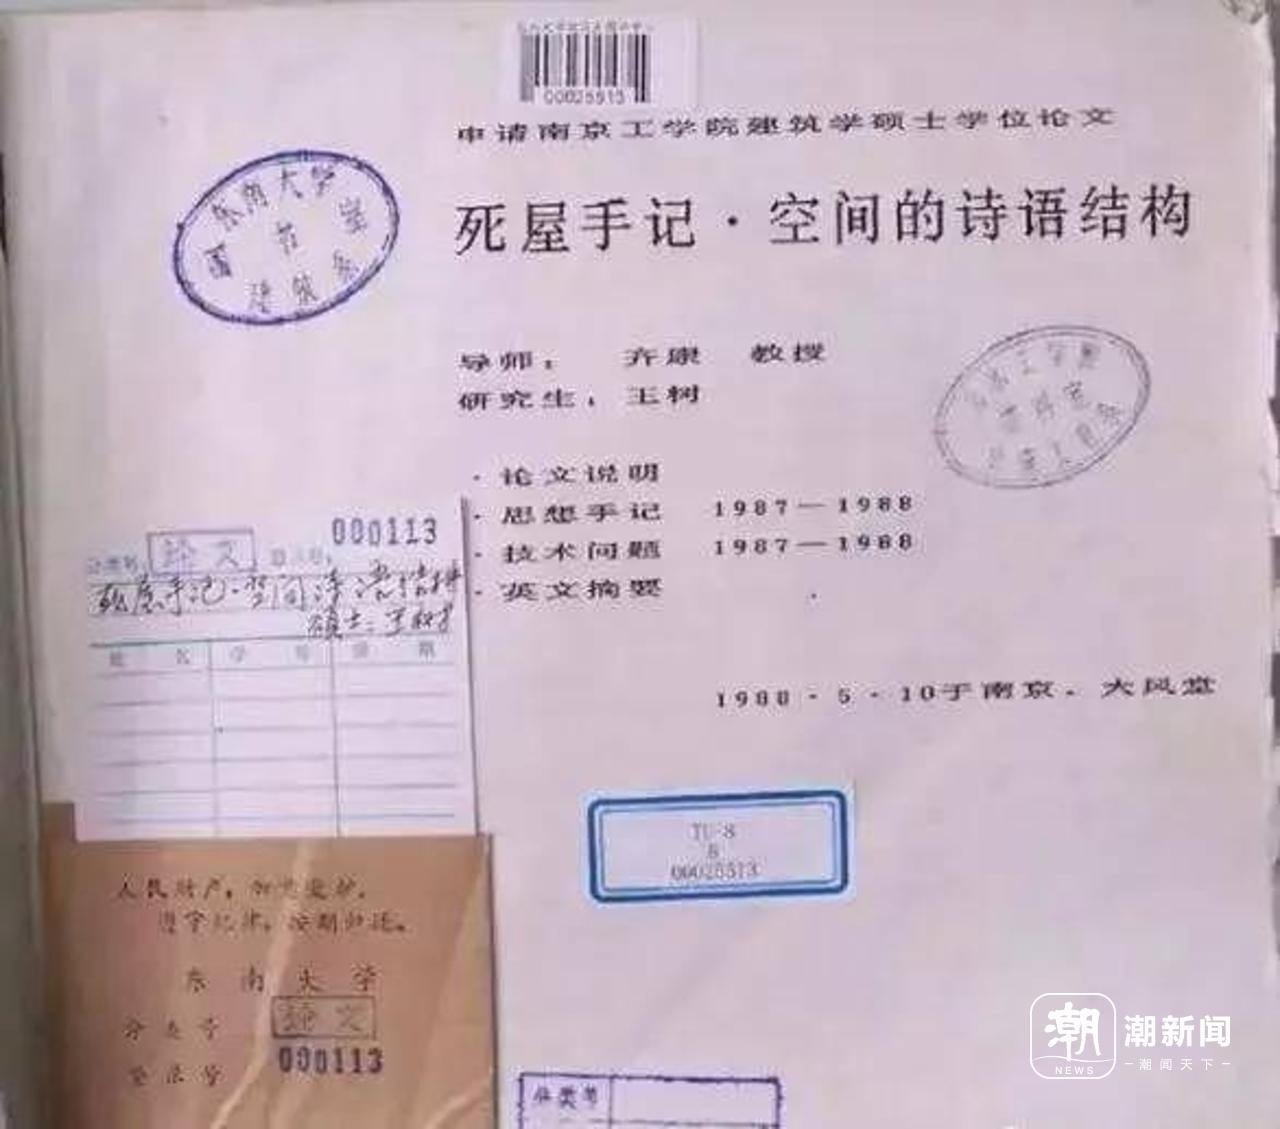 00025513
申请南京工学院建筑学硕士学位论文
死屋手记·空间的诗语结构
东南大学
图书室
建筑系
导师： 齐康 教授
研究生： 王树
·论文说明
·思想手记 1987—1988
·技术问题 1987—1988
·英文摘要
1988·5·10于南京·大风堂
论文
000113
死屋手记·空间诗语结构
硕士：王树
姓名 学号 日期
TU-8
00025513
人民财产，加意爱护，
遵守纪律，按期归还。
东南大学
分类号 论文
登录号 000113
分类号
潮 潮新闻
NEWS 潮闻天下